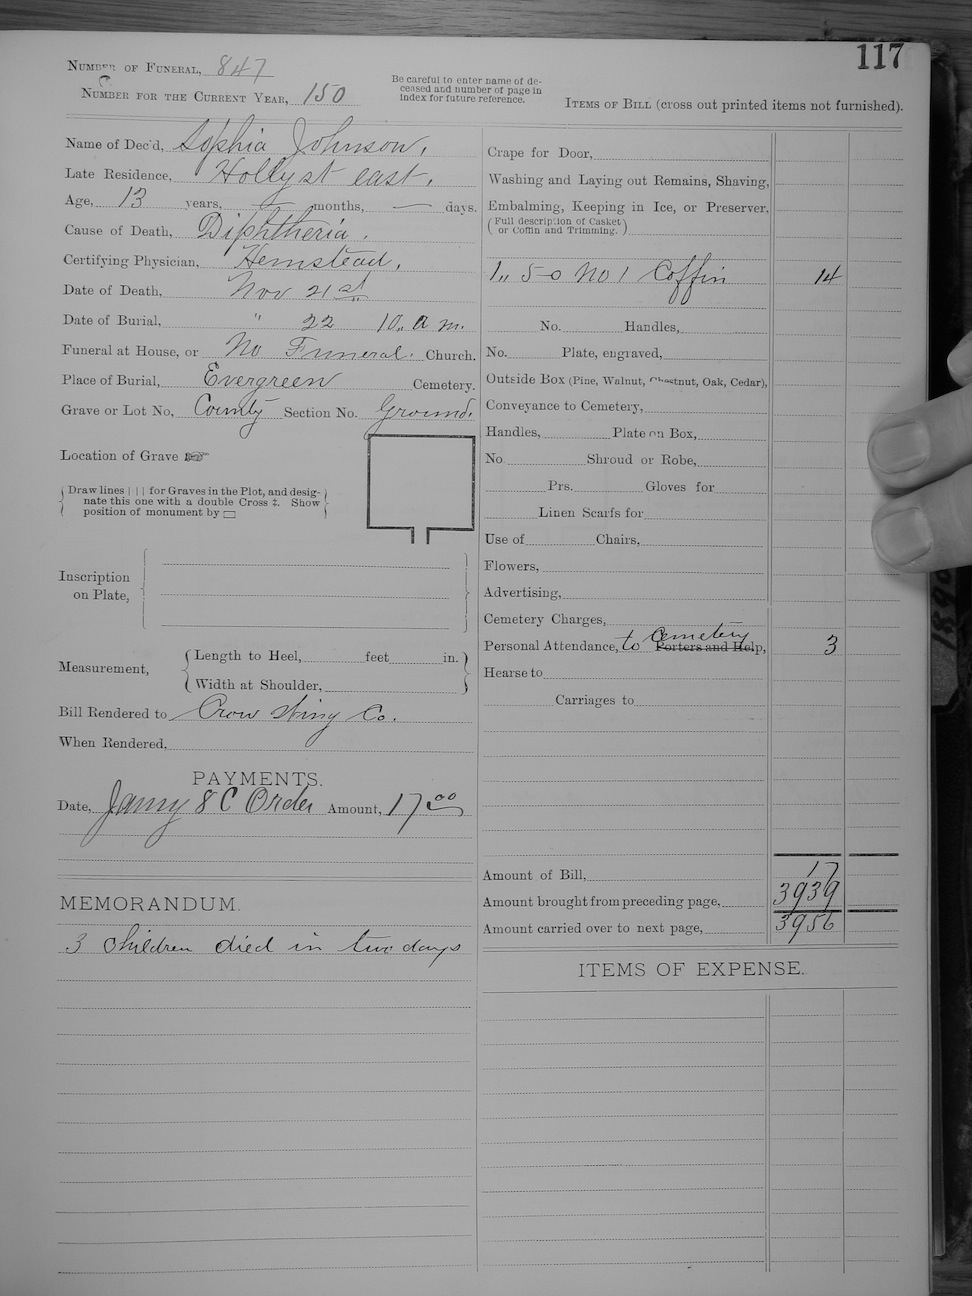 117
Number of Funeral, 847
Number for the Current Year, 150
Be careful to enter name of de-
ceased and number of page in
index for future reference.
Items of Bill (cross out printed items not furnished).
Name of Dec'd, Sophia Johnson.
Late Residence, Holly st east.
Age, 13 years, — months, — days.
Cause of Death, Diphtheria.
Certifying Physician, Hemstead.
Date of Death, Nov 21st
Date of Burial, " 22 10,, a m.
Funeral at House, or No Funeral. Church.
Place of Burial, Evergreen Cemetery.
Grave or Lot No, County Section No. Ground.
Location of Grave ☞
Draw lines | | | for Graves in the Plot, and desig-
nate this one with a double Cross ‡. Show
position of monument by ▭
Inscription
on Plate,
Measurement,
Length to Heel, feet in.
Width at Shoulder,
Bill Rendered to Crow Wing Co.
When Rendered,
PAYMENTS.
Date, Janny 8 C Order Amount, 17 00
MEMORANDUM.
3 children died in two days
Crape for Door,
Washing and Laying out Remains, Shaving,
Embalming, Keeping in Ice, or Preserver,
(Full description of Casket
or Coffin and Trimming.)
1,, 5-0 No 1 Coffin 14
No. Handles,
No. Plate, engraved,
Outside Box (Pine, Walnut, Chestnut, Oak, Cedar),
Conveyance to Cemetery,
Handles, Plate on Box,
No. Shroud or Robe,
Prs. Gloves for
Linen Scarfs for
Use of Chairs,
Flowers,
Advertising,
Cemetery Charges,
Personal Attendance, to Cemetery Porters and Help, 3
Hearse to
Carriages to
Amount of Bill, 17
Amount brought from preceding page, 3939
Amount carried over to next page, 3956
ITEMS OF EXPENSE.